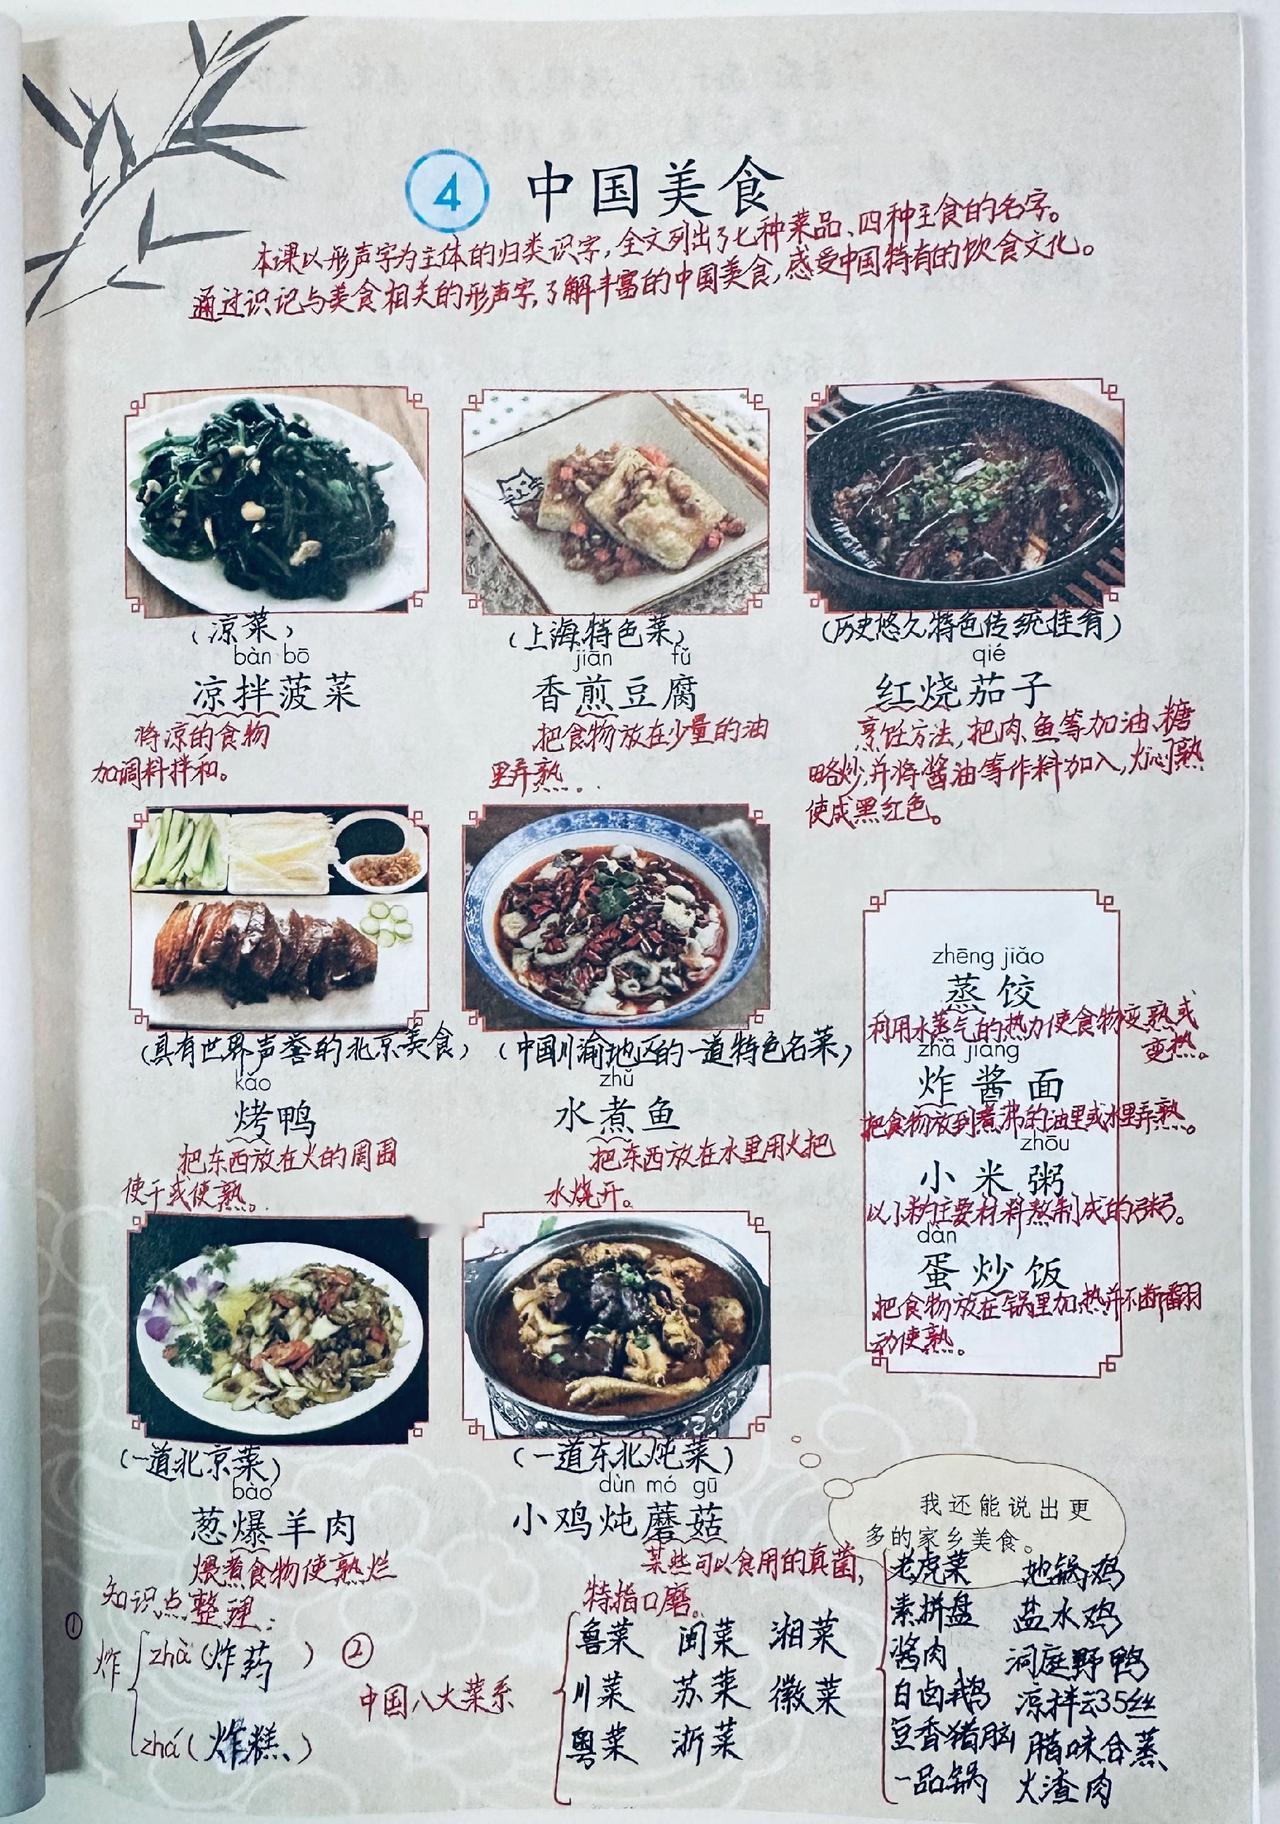 4 中国美食
本课以形声字为主体的归类识字，全文列出了七种菜品、四种主食的名字。
通过识记与美食相关的形声字，了解丰富的中国美食，感受中国特有的饮食文化。
（凉菜）
bàn bō
凉拌菠菜
将凉的食物
加调料拌和。
（上海特色菜）
jiān fǔ
香煎豆腐
把食物放在少量的油
里弄熟。
（历史悠久特色传统佳肴）
qié
红烧茄子
烹饪方法，把肉、鱼等加油、糖
略炒，并将酱油等作料加入，焖熟
使成黑红色。
（具有世界声誉的北京美食）
kǎo
烤鸭
把东西放在火的周围
使干或使熟。
（中国川渝地区的一道特色名菜）
zhǔ
水煮鱼
把东西放在水里用火把
水烧开。
zhēng jiǎo
蒸饺
利用水蒸气的热力使食物变熟或
变热。
zhá jiàng
炸酱面
把食物放到煮沸的油里或水里弄熟。
zhōu
小米粥
以小米为主要材料熬制成的粥。
dàn
蛋炒饭
把食物放在锅里加热并不断翻
动使熟。
（一道北京菜）
bào
葱爆羊肉
煨煮食物使熟烂
（一道东北炖菜）
dùn mó gū
小鸡炖蘑菇
某些可以食用的真菌，
特指口蘑。
我还能说出更
多的家乡美食。
老虎菜 地锅鸡
素拼盘 盐水鸡
酱肉 洞庭野鸭
白卤鹅 凉拌云35丝
豆香猪脑 腊味合蒸
一品锅 火渣肉
知识点整理：
① 炸 zhà（炸药）
zhá（炸糕）
② 中国八大菜系
鲁菜 闽菜 湘菜
川菜 苏菜 徽菜
粤菜 浙菜